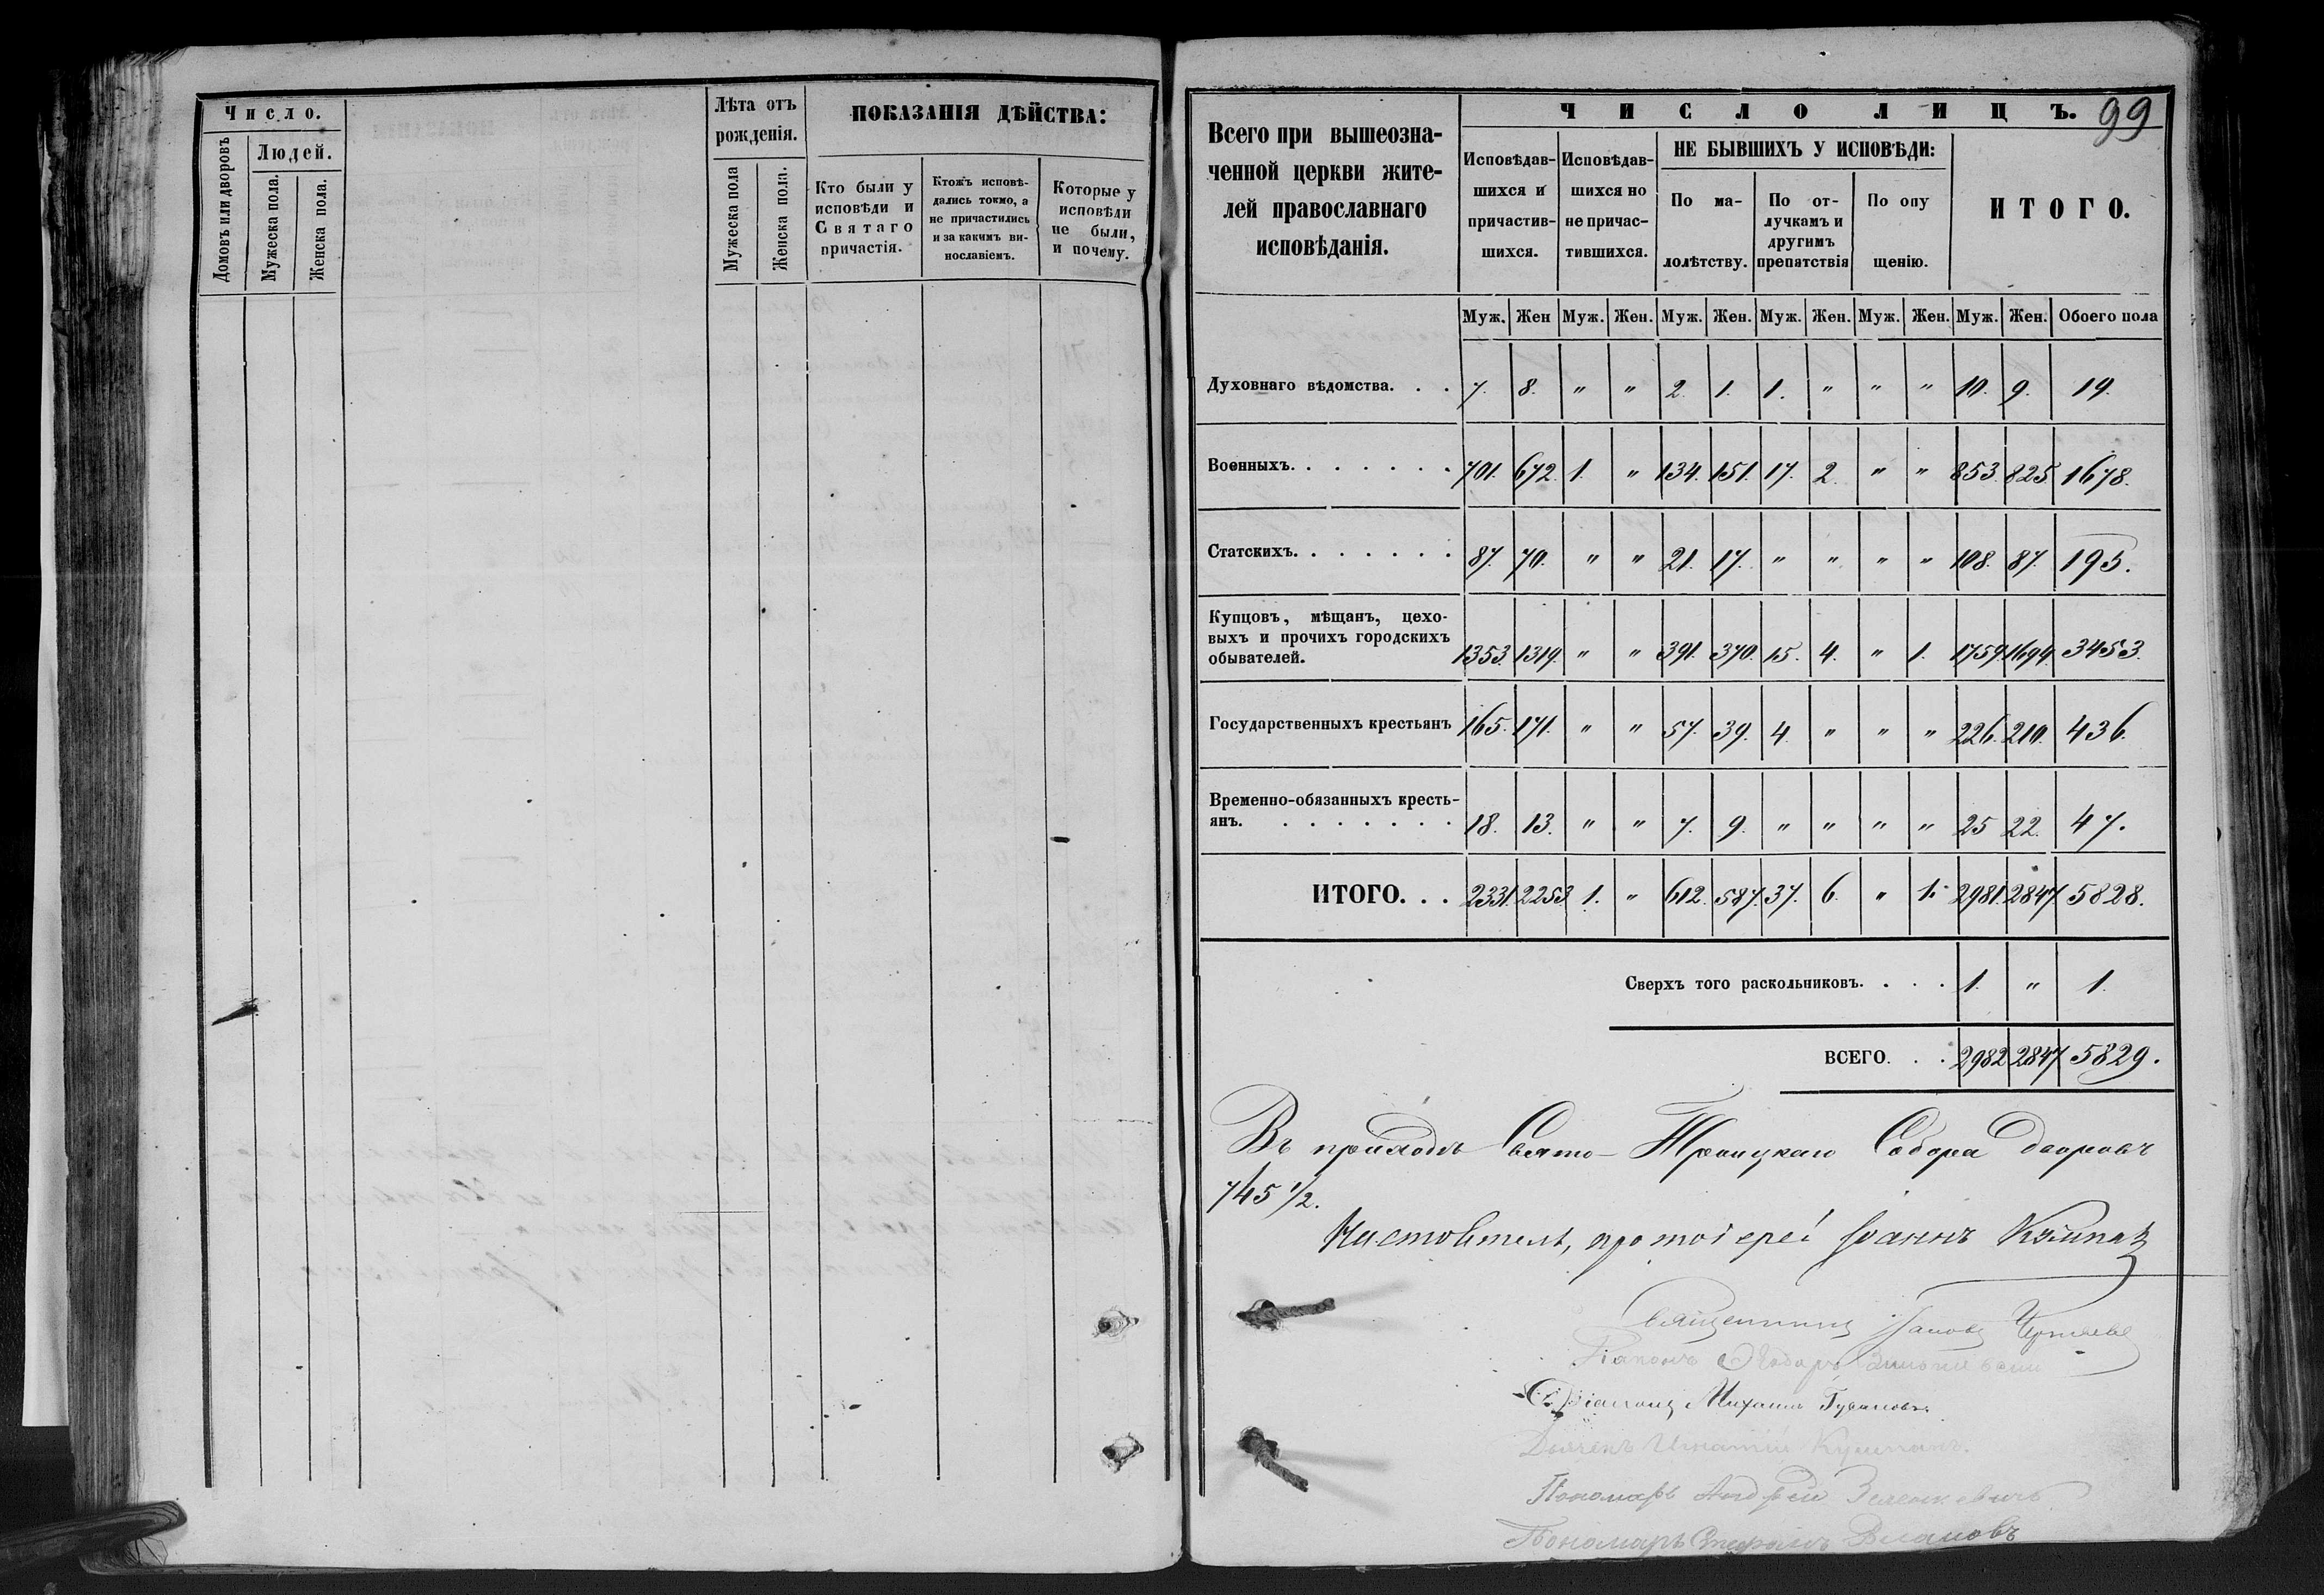 Число.
Домовъ или дворовъ
Людей.
Мужеска пола.
Женска пола.
Лѣта отъ
рожденія.
Мужеска пола
Женска пола.
ПОКАЗАНІЯ ДѢЙСТВА:
Кто были у
исповѣди и
Святаго
причастія.
Ктожъ исповѣ-
дались токмо, а
не причастились
и за какимъ ви-
нословіемъ.
Которые у
исповѣди
не были,
и почему.
99
Всего при вышеозна-
ченной церкви жите-
лей православнаго
исповѣданія.
ЧИСЛО ЛИЦЪ.
Исповѣдав-
шихся и
причастив-
шихся.
Исповѣдав-
шихся но
не причас-
тившихся.
НЕ БЫВШИХЪ У ИСПОВѢДИ:
По ма-
лолѣтству.
По от-
лучкамъ и
другимъ
препятствія
По опу
щенію.
ИТОГО.
Муж. Жен Муж. Жен. Муж. Жен. Муж. Жен. Муж. Жен. Муж. Жен. Обоего пола
Духовнаго вѣдомства. . . 7. 8. " " 2. 1. 1. " " " 10. 9. 19.
Военныхъ. . . . . . . . 701. 672. 1. " 134. 151. 17. 2. " " 853. 825. 1678.
Статскихъ. . . . . . . . 87. 70. " " 21. 17. " " " " 108. 87. 195.
Купцовъ, мѣщанъ, цехо-
выхъ и прочихъ городскихъ
обывателей. 1353. 1319. " " 391. 370. 15. 4. " 1. 1759. 1694. 3453.
Государственныхъ крестьянъ 165. 171. " " 57. 39. 4 " " " 226. 210. 436.
Временно-обязанныхъ кресть-
янъ. . . . . . . . 18. 13. " " 7. 9. " " " " 25 22. 47.
ИТОГО. . . 2331. 2253 1. " 612. 587. 37. 6. " 1. 2981. 2847 5828.
Сверхъ того раскольниковъ. . . . 1. " 1.
ВСЕГО. . . 2982 2847 5829.
Въ приходѣ Свято-Троицкаго Собора дворовъ
745 1/2.
Настоятель, протоіерей Іоаннъ
Священникъ
Діаконъ
Діаконъ Михаилъ
Дьячекъ Игнатій
Пономарь Андрей Зеленкевичъ
Пономарь